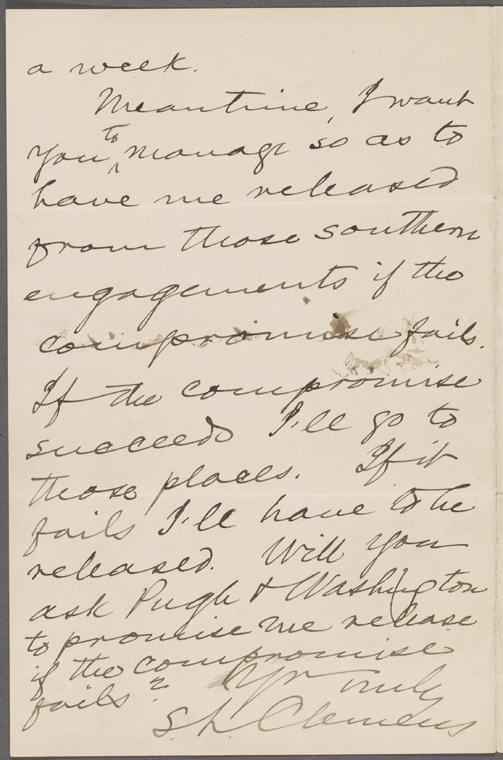 a week.
Meantime, I want
you to manage so as to
have me released
from those southern
engagements if the
compromise fails.
If the compromise
succeeds I'll go to
those places. If it
fails I'll have to be
released. Will you
ask Pugh & Washington
to promise me release
if the compromise
fails?
Yr truly
S. L. Clemens